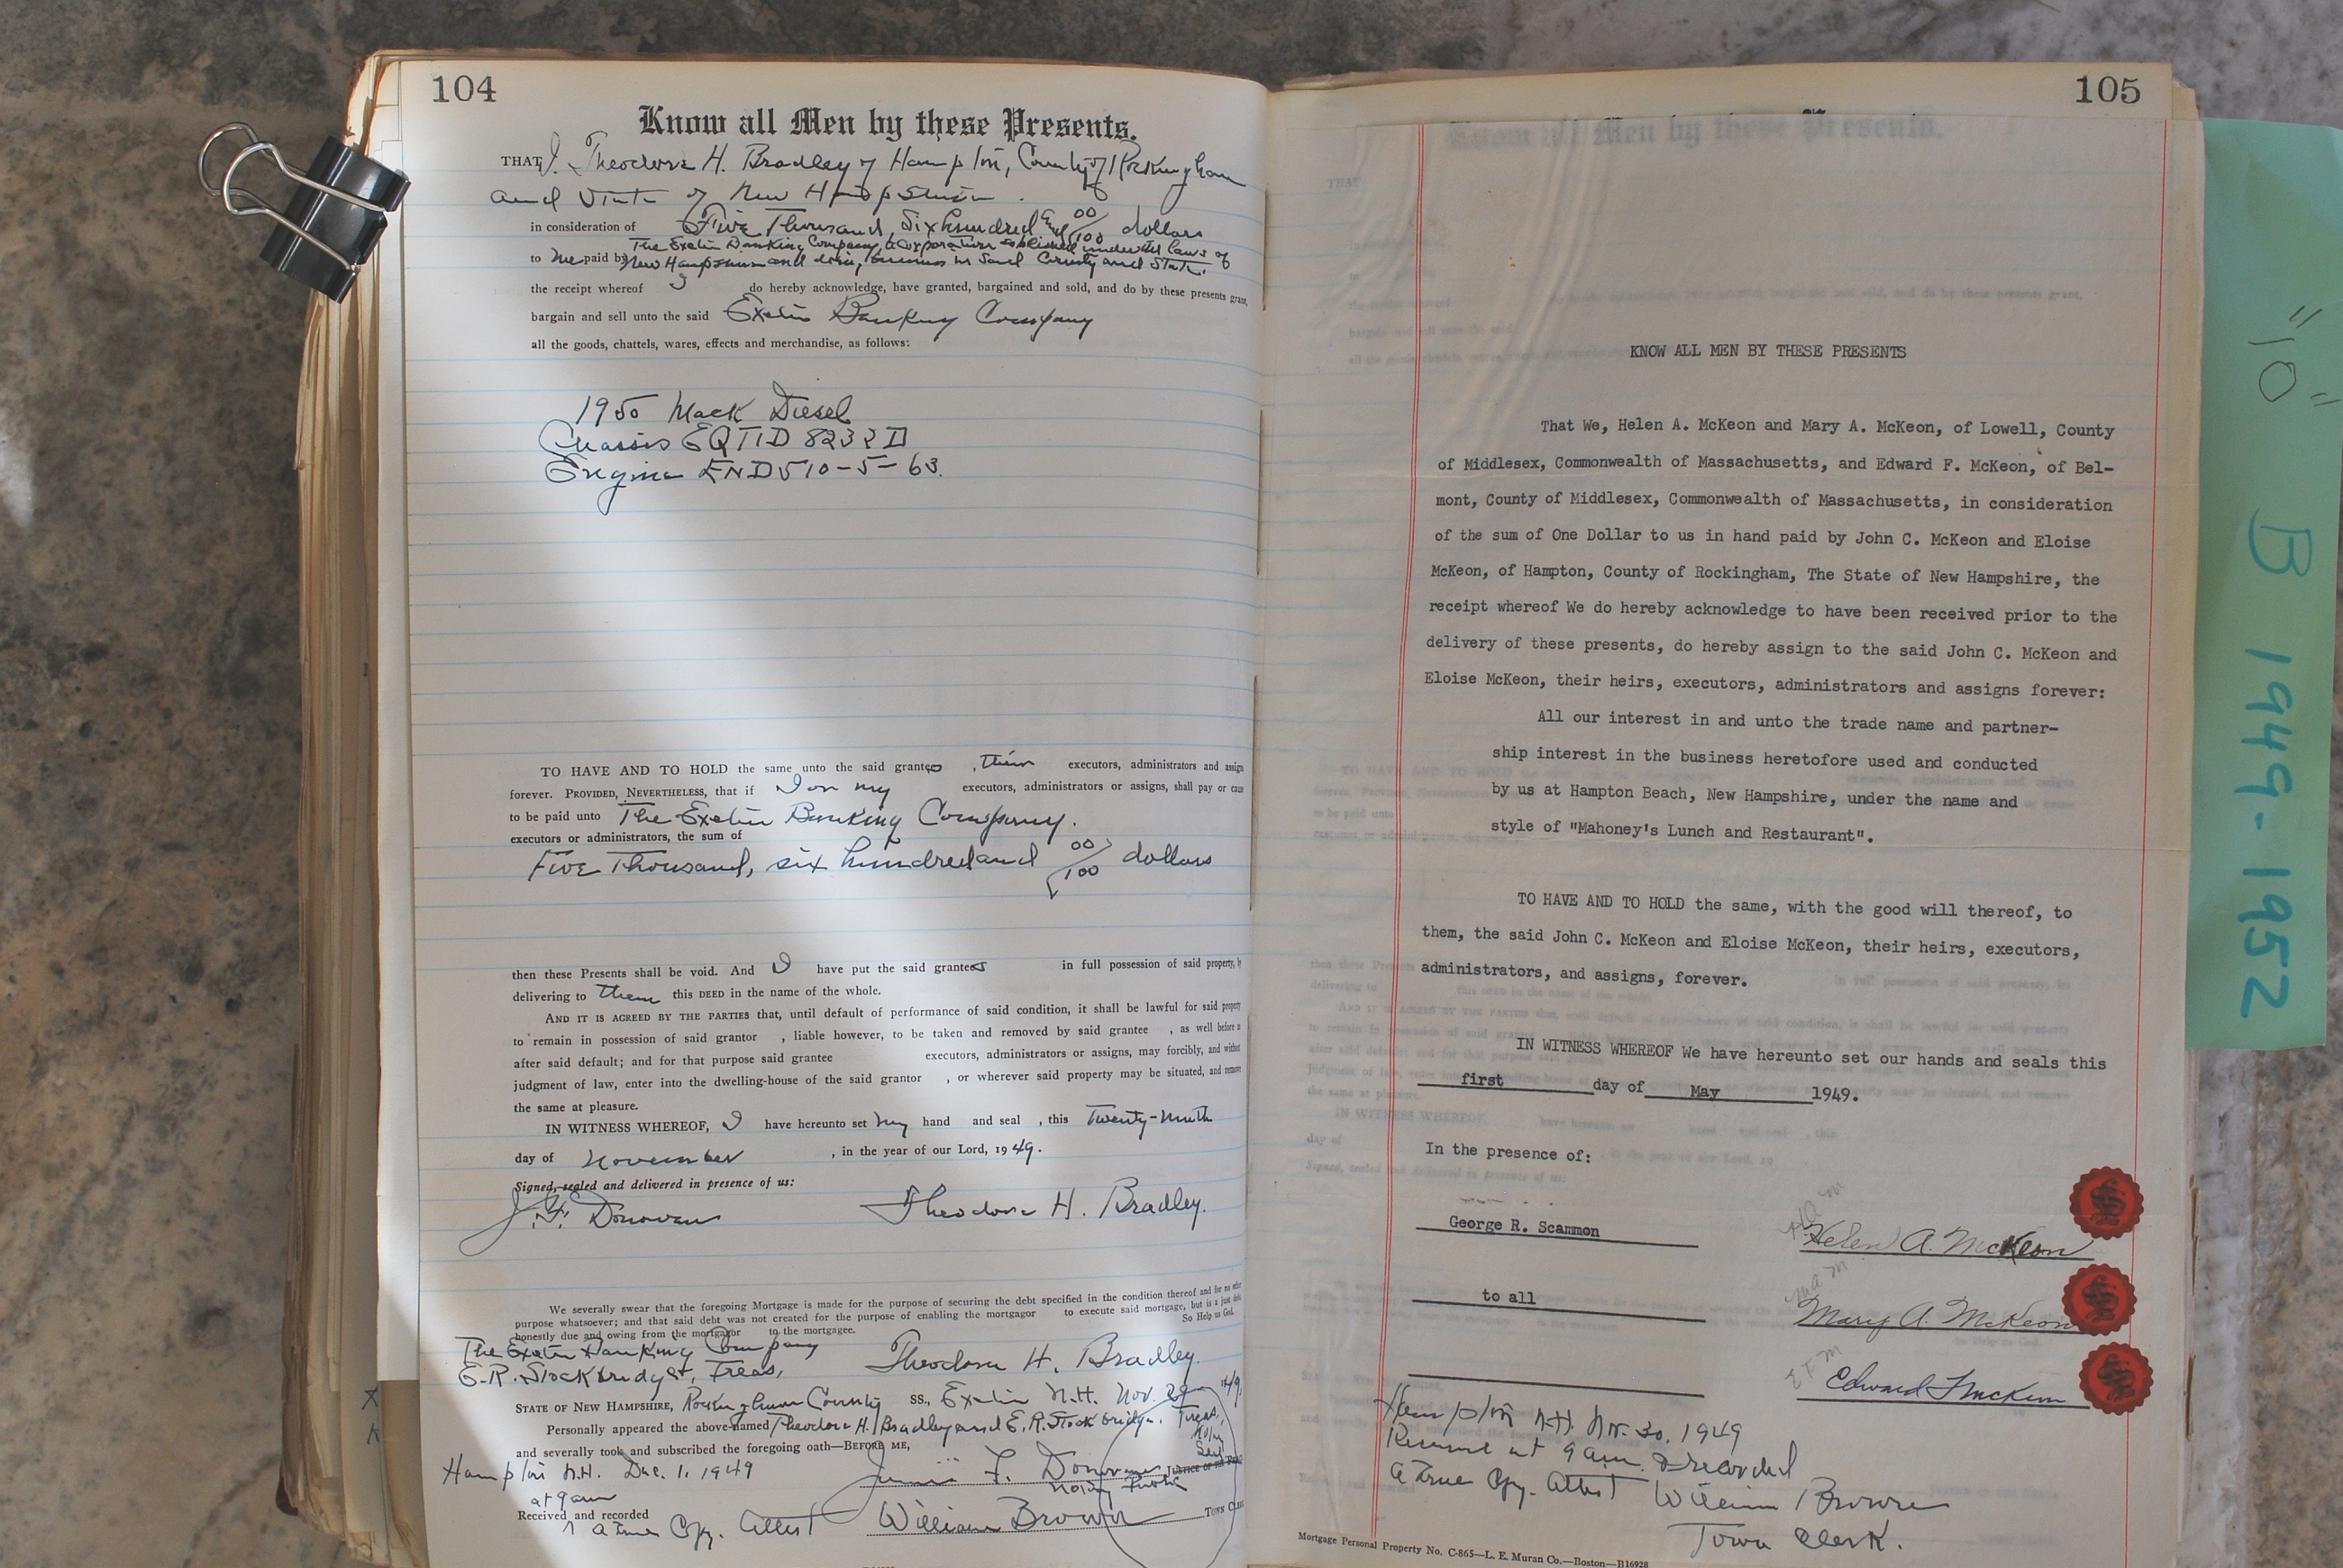 104
Know all Men by these Presents.
THAT I, Theodore H. Bradley of Hampton, County of Rockingham
and State of New Hampshire.
in consideration of Five Thousand, Six hundred and 00/100 dollars
The Exeter Banking Company, a corporation established under the laws of
to me paid by New Hampshire and doing business in said County and State.
the receipt whereof do hereby acknowledge, have granted, bargained and sold, and do by these presents grant,
bargain and sell unto the said Exeter Banking Company
all the goods, chattels, wares, effects and merchandise, as follows:
1950 Mack Diesel
Chassis EQTID 8232 D
Engine END510-5-63.
TO HAVE AND TO HOLD the same unto the said grantees, their executors, administrators and assigns
forever. PROVIDED, NEVERTHELESS, that if I or my executors, administrators or assigns, shall pay or cause
to be paid unto The Exeter Banking Company.
executors or administrators, the sum of
Five Thousand, six hundred and 00/100 dollars
then these Presents shall be void. And I have put the said grantees in full possession of said property, by
delivering to them this DEED in the name of the whole.
AND IT IS AGREED BY THE PARTIES that, until default of performance of said condition, it shall be lawful for said property
to remain in possession of said grantor , liable however, to be taken and removed by said grantee , as well before as
after said default; and for that purpose said grantee executors, administrators or assigns, may forcibly, and without
judgment of law, enter into the dwelling-house of the said grantor , or wherever said property may be situated, and remove
the same at pleasure.
IN WITNESS WHEREOF, I have hereunto set my hand and seal , this Twenty-ninth
day of November , in the year of our Lord, 1949.
Signed, sealed and delivered in presence of us:
J. F. Donovan Theodore H. Bradley.
We severally swear that the foregoing Mortgage is made for the purpose of securing the debt specified in the condition thereof and for no other
purpose whatsoever; and that said debt was not created for the purpose of enabling the mortgagor to execute said mortgage, but is a just debt
honestly due and owing from the mortgagor to the mortgagee. So Help us God.
The Exeter Banking Company
E. R. Stockbridge, Treas. Theodore H. Bradley.
STATE OF NEW HAMPSHIRE, Rockingham County SS., Exeter N.H. Nov. 29 1949
Personally appeared the above-named Theodore H. Bradley and E. R. Stockbridge, Treas.,
and severally took and subscribed the foregoing oath—BEFORE ME,
Notary Seal
F. Donovan JUSTICE OF THE PEACE
Notary Public
Hampton N.H. Dec. 1, 1949
at 9 am
Received and recorded
A True Cpy. Attest William Brown TOWN CLERK
105
KNOW ALL MEN BY THESE PRESENTS
That We, Helen A. McKeon and Mary A. McKeon, of Lowell, County
of Middlesex, Commonwealth of Massachusetts, and Edward F. McKeon, of Bel-
mont, County of Middlesex, Commonwealth of Massachusetts, in consideration
of the sum of One Dollar to us in hand paid by John C. McKeon and Eloise
McKeon, of Hampton, County of Rockingham, The State of New Hampshire, the
receipt whereof We do hereby acknowledge to have been received prior to the
delivery of these presents, do hereby assign to the said John C. McKeon and
Eloise McKeon, their heirs, executors, administrators and assigns forever:
All our interest in and unto the trade name and partner-
ship interest in the business heretofore used and conducted
by us at Hampton Beach, New Hampshire, under the name and
style of "Mahoney's Lunch and Restaurant".
TO HAVE AND TO HOLD the same, with the good will thereof, to
them, the said John C. McKeon and Eloise McKeon, their heirs, executors,
administrators, and assigns, forever.
IN WITNESS WHEREOF We have hereunto set our hands and seals this
first day of May 1949.
In the presence of:
HAM
George R. Scammon Helen A. McKeon
MAM
to all Mary A. McKeon
EFM
Edward F McKeon
Hampton N.H. Nov. 30, 1949
Received at 9 am. & recorded
A True Cpy. Attest William Brown
Town Clerk.
Mortgage Personal Property No. C-865—L. E. Muran Co.—Boston—B16928
"10" B 1949-1952